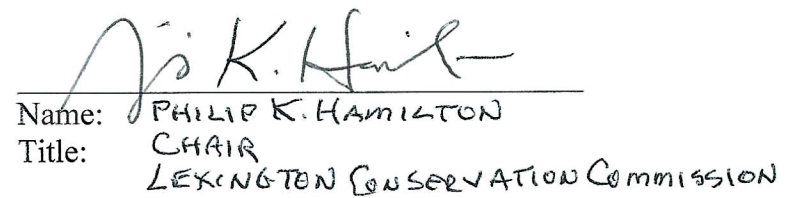 K. Hamilton
Name: PHILIP K. HAMILTON
Title: CHAIR
LEXINGTON CONSERVATION COMMISSION